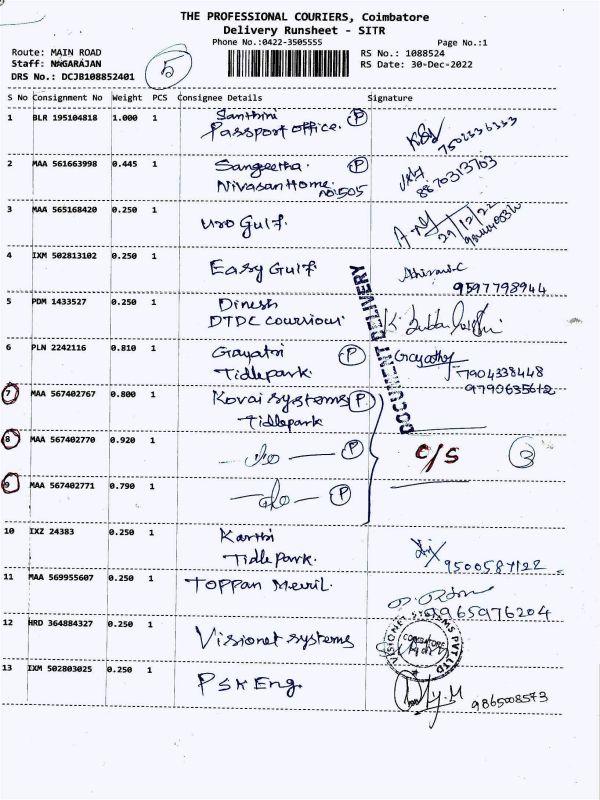 THE PROFESSIONAL COURIERS, Coimbatore
Delivery Runsheet - SITR
Phone No.:0422-3505555 Page No.:1
Route: MAIN ROAD RS No.: 1088524
Staff: NAGARAJAN RS Date: 30-Dec-2022
DRS No.: DCJB108852401
5
S No Consignment No Weight PCS Consignee Details Signature
1 BLR 195104818 1.000 1 Santhini P
Passport office. 7502336333
2 MAA 561663998 0.445 1 Sangeetha. P
Nivasan Home. no:505 8870313703
3 MAA 565168420 0.250 1 uro Gulf.
29/12/22
4 IXM 502813102 0.250 1 Easy Gulf
9597798944
5 PDM 1433527 0.250 1 Dinesh
DTDC couriour
DOCUMENT DELIVERY
6 PLN 2242116 0.810 1 Gayatri P Gayathry
Tidlepark. 7904338448
9790635612
7 MAA 567402767 0.800 1 Kovai systems P
Tidlepark
8 MAA 567402770 0.920 1 — do — P C/S 3
9 MAA 567402771 0.790 1 — do — P
10 IXZ 24383 0.250 1 Karthi
Tidlepark. 9500587122
11 MAA 569955607 0.250 1 TOPPAN Merril.
9965976204
12 HRD 364884327 0.250 1 Visionet systems
VISIONET SYSTEMS PVT LTD
COIMBATORE
13 IXM 502803025 0.250 1 PSK Eng.
9865008573